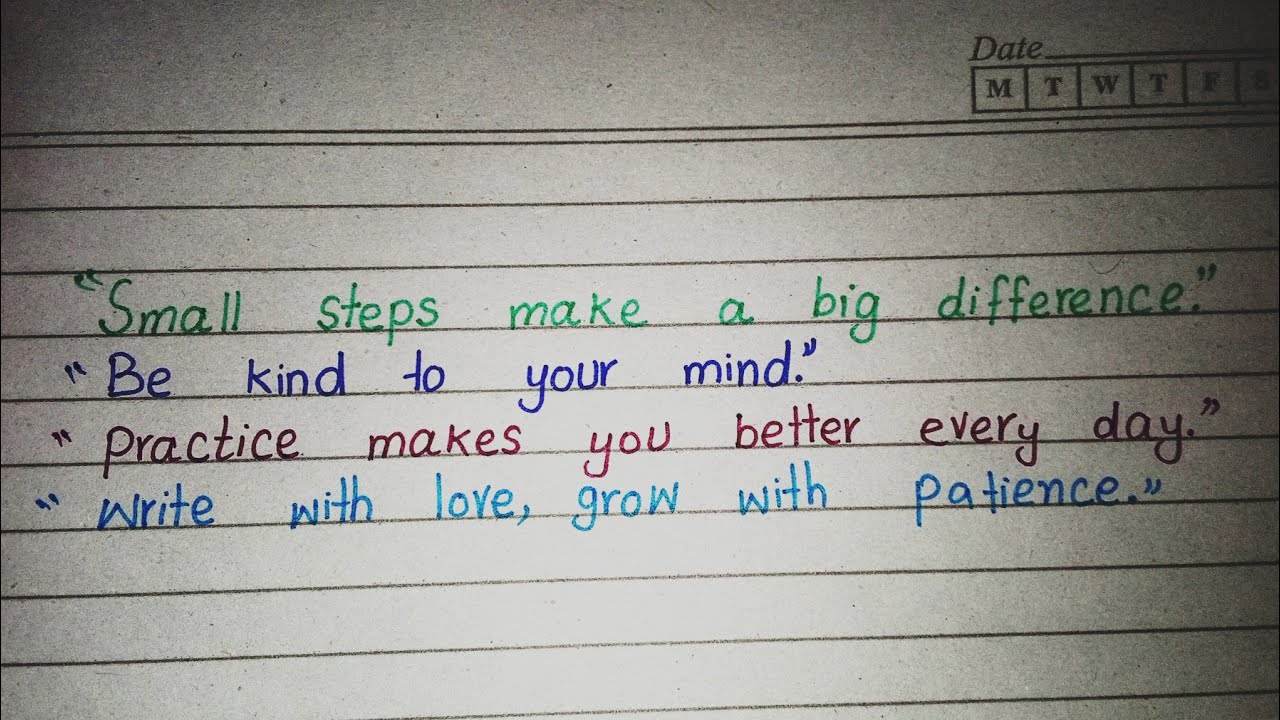 Date
M T W T F S
"Small steps make a big difference."
"Be kind to your mind."
"Practice makes you better every day."
"Write with love, grow with patience."